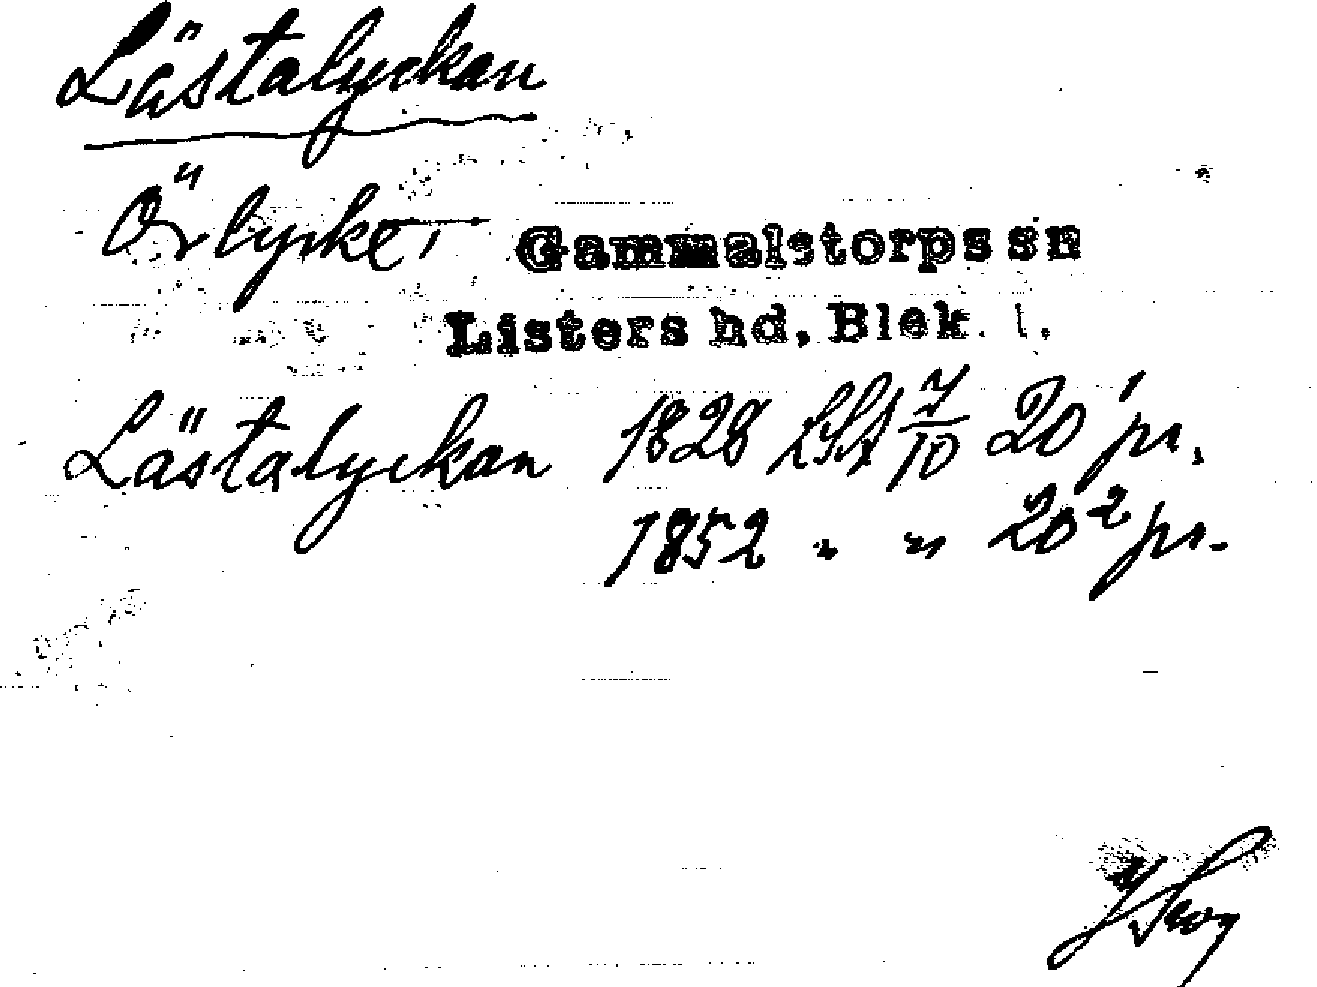 Lästalyckan
Örlycket Gammalstorps sn
Listers hd, Blek. l.
Lästalyckan 1828 LSA 7/10 20' pr.
1852 " " 20² pr.